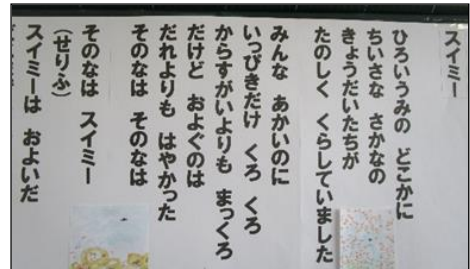 スイミー
ひろいうみの どこかに
ちいさな さかなの
きょうだいたちが
たのしく くらしていました
みんな あかいのに
いっぴきだけ くろ くろ
からすがいよりも まっくろ
だけど およぐのは
だれよりも はやかった
そのなは そのなは
そのなは スイミー
(せりふ)
スイミーは およいだ